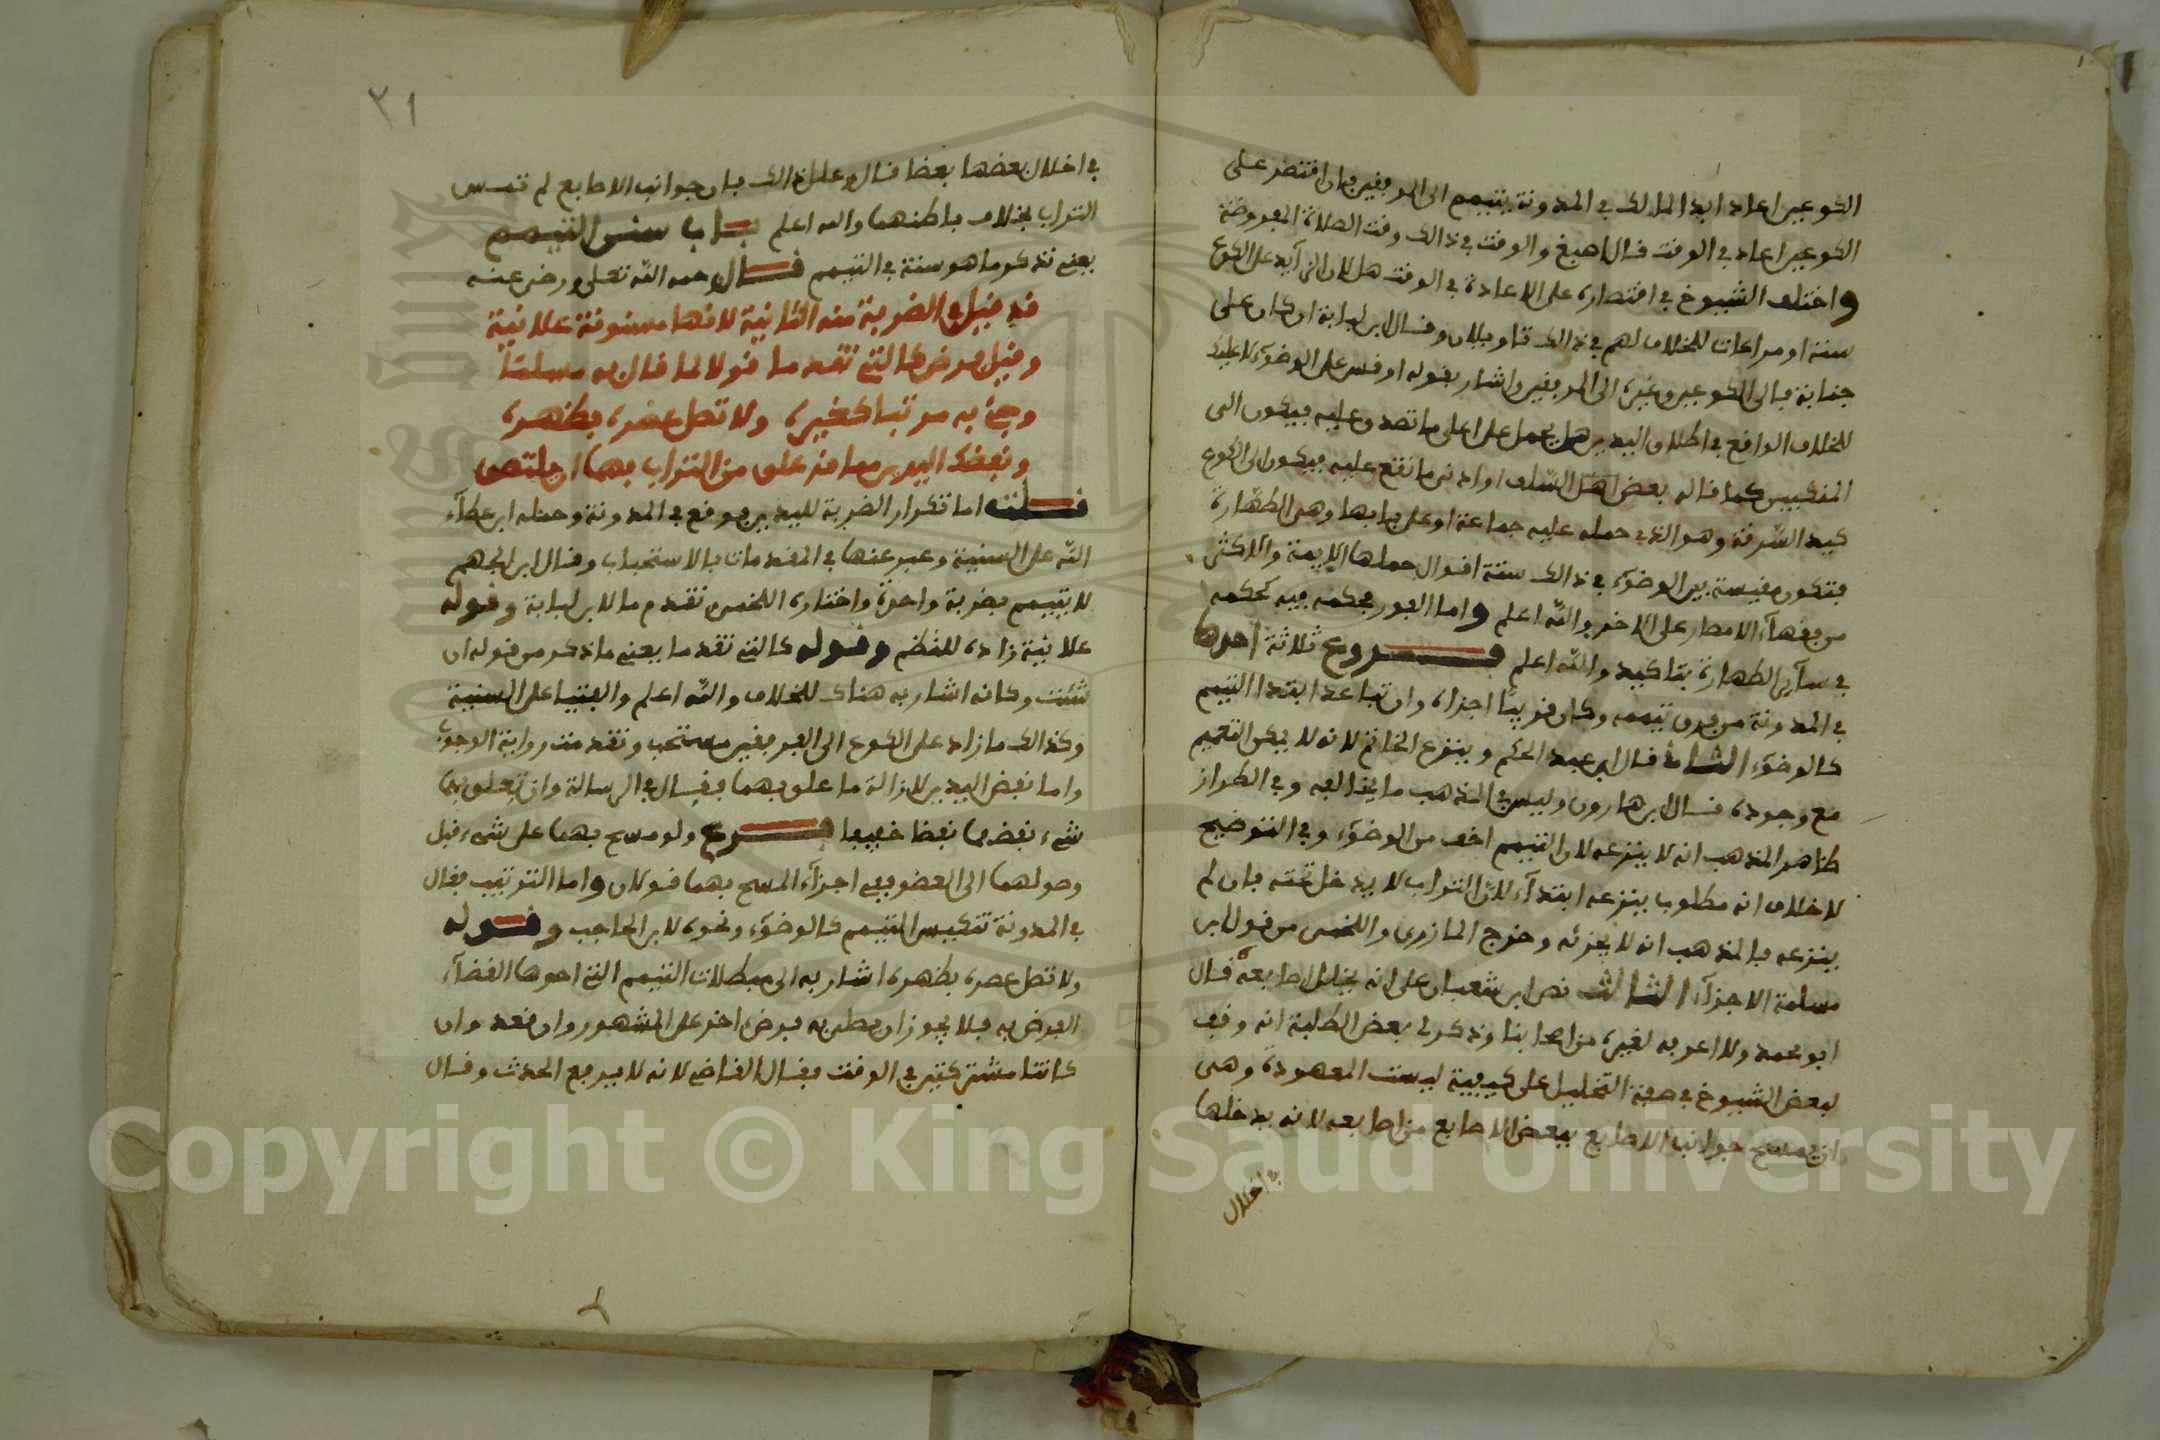 الكوعين اعاد ابدا لمالك في المدونة يتيمم الى المرفقين فان اقتصر على
الكوعين اعاد في الوقت قال اصبغ والوقت في ذالك وقت الصلاة المفروضة
واختلف الشيوخ في اقتصاره على الاعادة في الوقت هل لان الزآيد على الكوع
سنة او مراعات للخلاف لهم في ذالك تاويلان وقال ابن لبابة ان كان على
جنابة فالى الكوعين وغيره الى المرفقين واشار بقوله او قس على الوضوء لا عليك
للخلاف الواقع في اطلاق اليدين هل يحمل على اعلى ما تصدق عليه فيكون الى
المنكبين كما قاله بعض اهل السلف او ادنى ما تقع عليه فيكون الى الكوع
كيد السرقة وهو الذي حمله عليه جماعة او على بابها وهي الطهارة
فتكون مقيسة بين الوضوء في ذالك ستة اقوال جملها الايمة والاكثر
من فقهآء الامصار على الاخير والله اعلم واما الفور فحكمه فيه كحكمه
في سآير الطهارة بتاكيد والله اعلم فروع ثلاثة احدها
في المدونة من فرق تيممه وكان قريبا اجزاه وان تباعد ابتدا التيمم
كالوضوء الثاني قال ابن عبد الحكم وينزع الخاتم لانه لا يمكن التعميم
مع وجوده قال ابن هارون وليس في المذهب ما يخالفه وفي الطراز
ظاهر المذهب انه لا ينزعه لان التيمم اخف من الوضوء وفي التوضيح
لا خلاف انه مطلوب بنزعه ابتدآء لان التراب لا يدخل تحته فان لم
ينزعه فالمذهب انه لا يجزئه وخرج المازري واللخمي من قول ابن
مسلمة الاجزآء الثالث نص ابن شعبان على انه يخلل اصابعه قال
ابو محمد ولا اعرفه لغيره من اصحابنا وذكر لي بعض الطلبة انه وقف
لبعض الشيوخ في صفة التخليل على كيفية ليست المعهودة وهي
ان يمسح جوانب الاصابع ببعض الاصابع من اصابعه لانه يدخلها
في اخلال
٢١
في اخلال بعضها بعضا قال وعلل ذالك بان جوانب الاصابع لم تمس
التراب بخلاف باطنهما والله اعلم باب سنن التيمم
يعني نذكر ما هو سنة في التيمم قال رحمه الله تعلى ورضى عنه
قد قيل في الضربة منه الثانية لانها مسنونة علانية
وقيل فرض كالتي تقدما قولا لما قال به مسلما
وجئ به مرتبا كغيره ولا تصل عصره بظهره
ونفضك اليدين مما قد علق من التراب بهما ان يلتصق
قلت اما تكرار الضربة لليدين فوقع في المدونة وحمله ابن عطآء
الله على السنية وعبر عنها في المقدمات بالاستحباب وقال ابن الجهم
لا يتيمم بضربة واحدة واختاره اللخمي تقدم ما لابن لبابة وقوله
علانية زاده للنظم وقوله كالتي تقدما يعني ما ذكر من قوله ان
شئت وكانه اشار به هناك للخلاف والله اعلم والفتيا على السنية
وكذالك ما زاد على الكوع الى المرفقين مستحب وتقدمت رواية الوجوب
واما نفض اليدين لازالة ما علق بهما فقال في الرسالة وان تعلق بهما
شيء نفضهما نفضا خفيفا فرع ولو مسح بهما على شيء قبل
وصولهما الى العضو ففي اجزآء المسح بهما قولان واما الترتيب فقال
في المدونة تنكيس التيمم كالوضوء ونحوه لابن الحاجب وقوله
ولا تصل عصره بظهره اشار به الى مبطلات التيمم التي احدها القضآء
الفرض به فلا يجوز ان يصلى به فرض اخر على المشهور وان نفعد وان
كانتا مشتركتين في الوقت فقال القاضي لانه لا يرفع الحدث وقال
Copyright © King Saud University